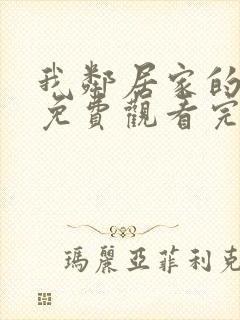 我鄰居家的
免費觀看完
瑪麗亞菲利克